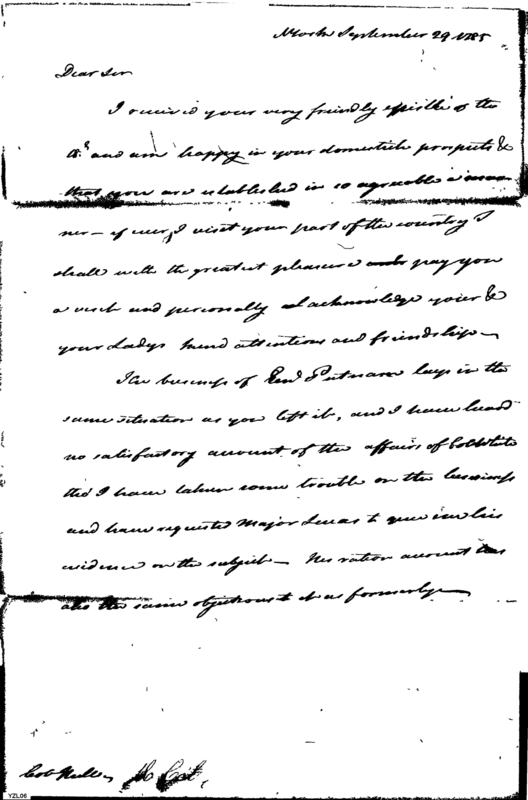 NYork September 29 1785
Dear Sir
I received your very friendly epistle of the
and am happy in your domestick prospects &
that you are established in so agreable a man
ner – if ever I visit your part of the country I
shall with the greatest pleasure pay you
a visit and personally acknowledge your &
your Ladys kind attentions and friendship –
The business of Putnam lays in the
same situation as you left it, and I have heard
no satisfactory account of the affairs of Col White
tho I have taken some trouble on the business
and have requested Major Lucas to give in his
evidence on the subject – his ration account has
also the same objections to it as formerly –
Col
YZL06